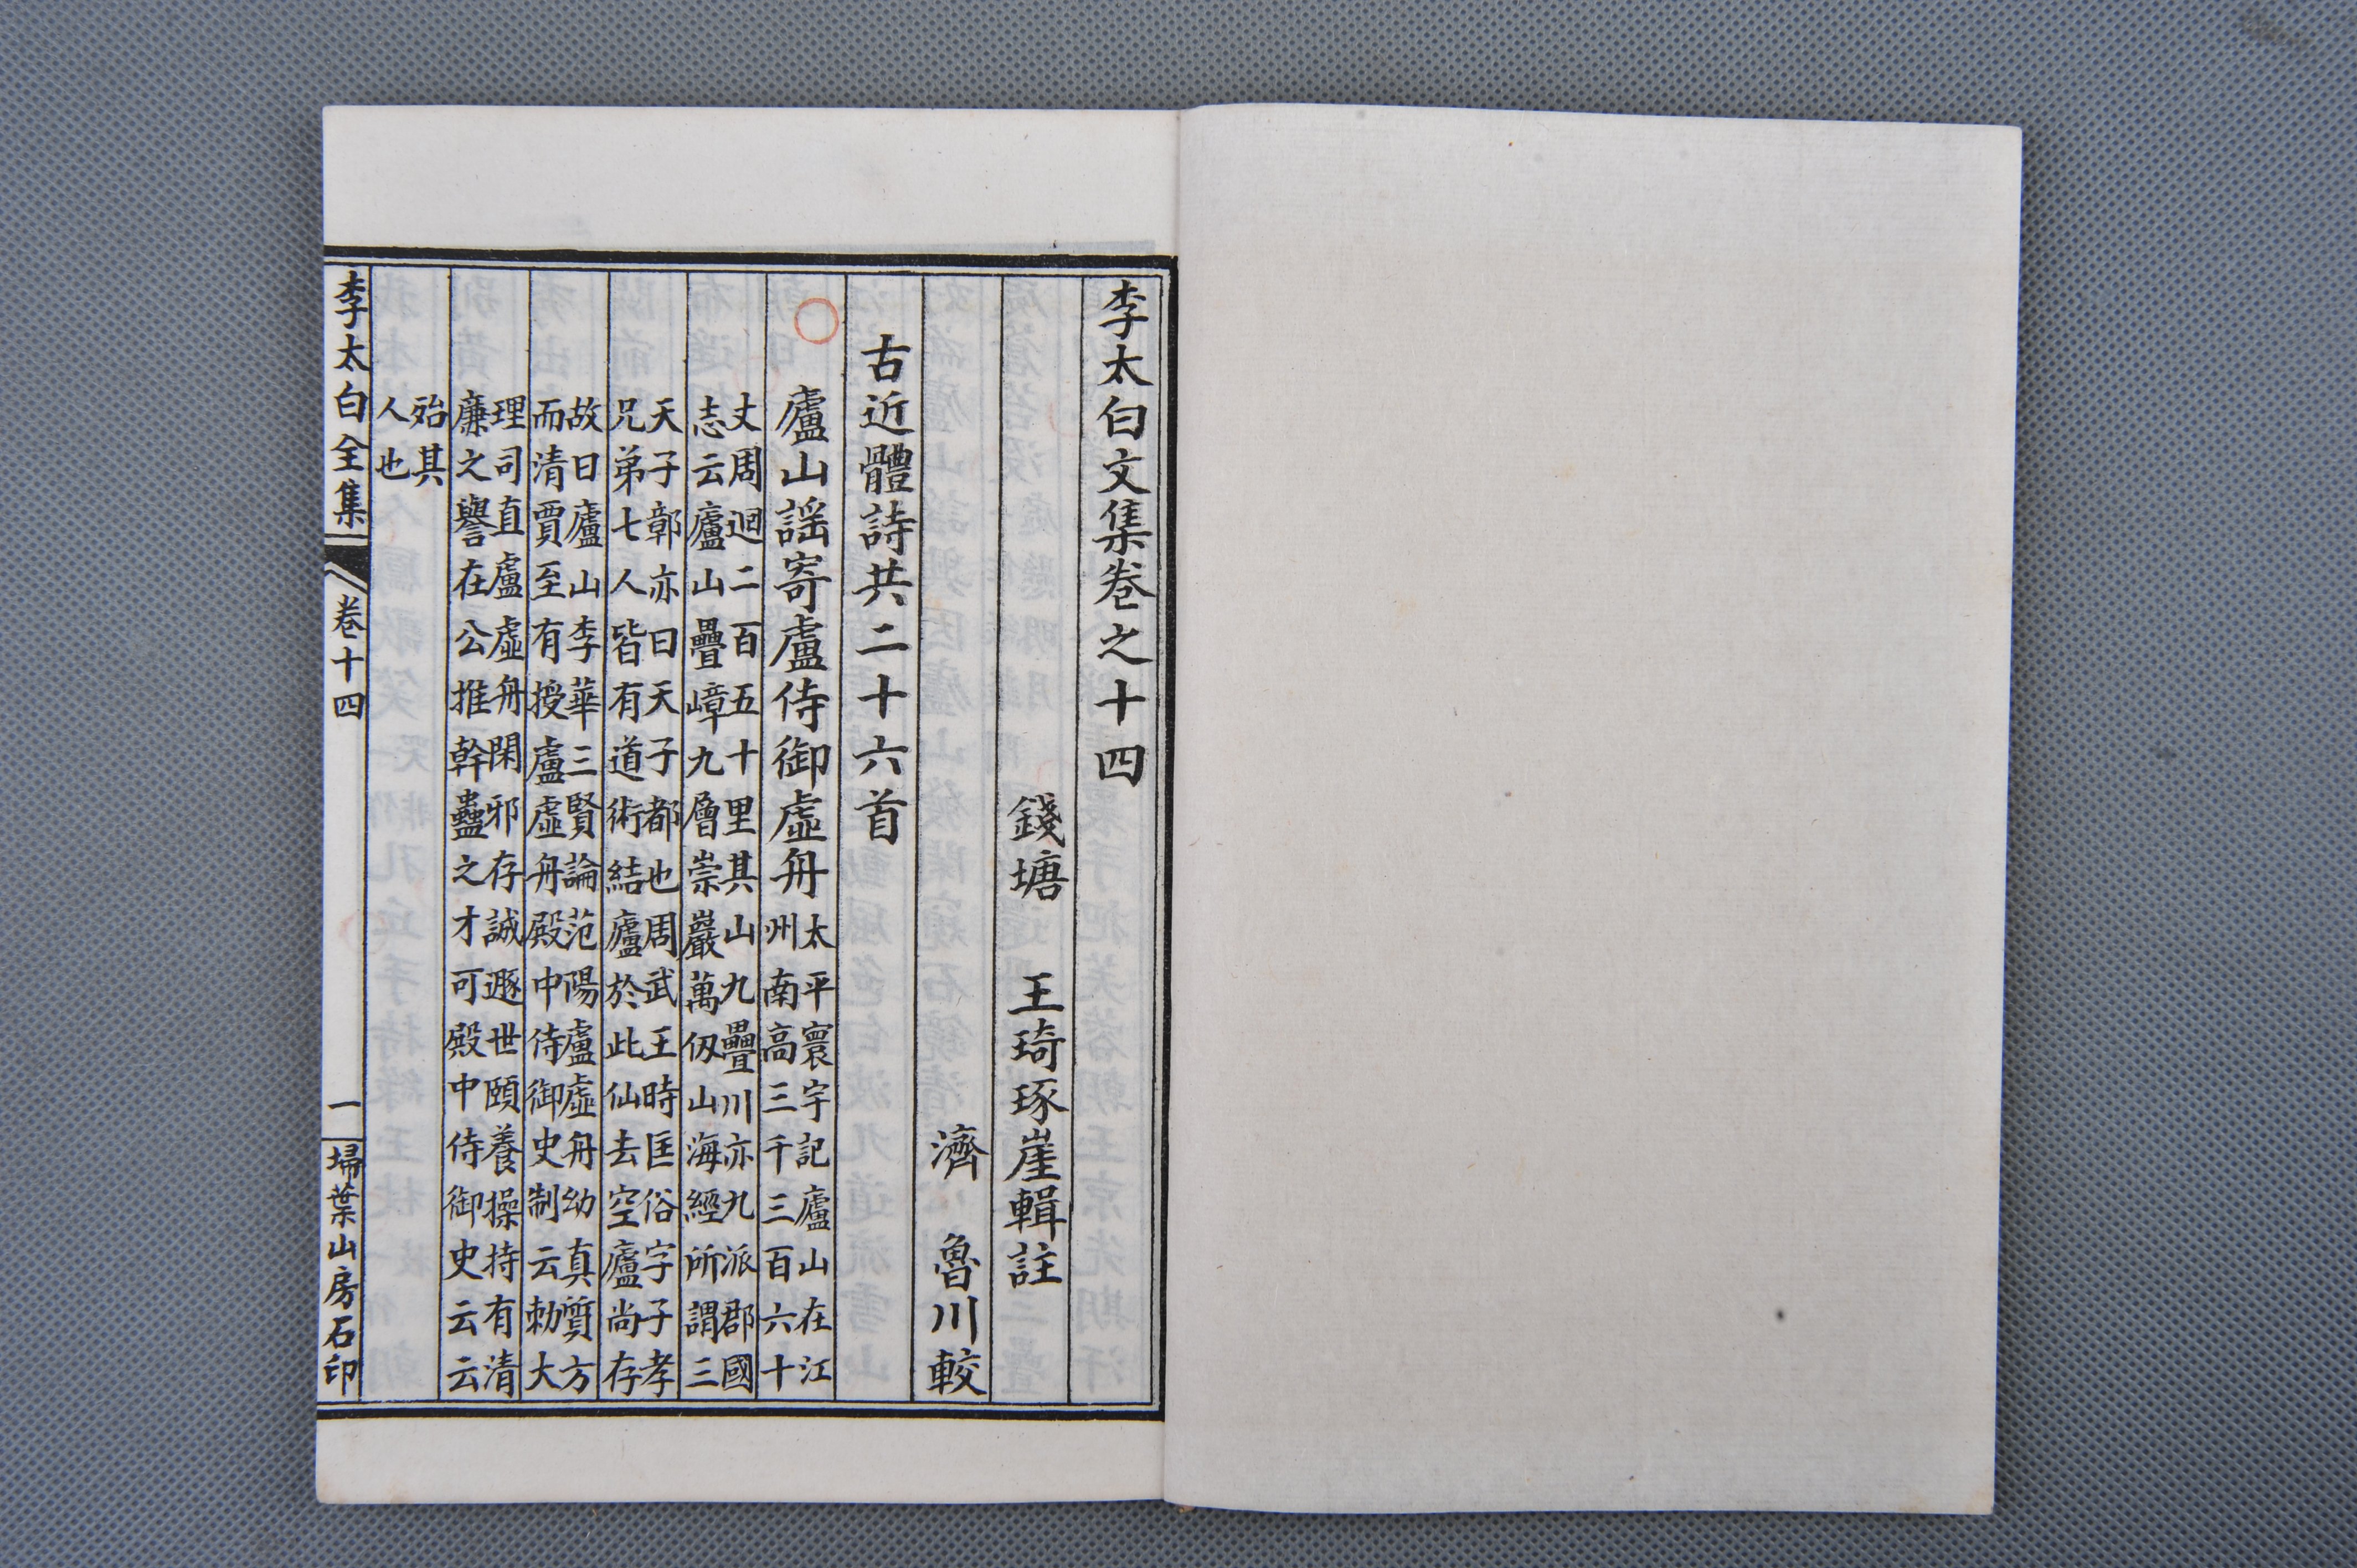 李太白文集卷之十四
錢塘 王琦琢崖輯註
濟 魯川較
古近體詩共二十六首
廬山謡寄盧侍御虛舟
太平寰宇記廬山在江
州南高三千三百六十
丈周迴二百五十里其山九疊川亦九派郡國
志云廬山疊嶂九層崇巖萬仭山海經所謂三
天子鄣亦曰天子都也周武王時匡俗字子孝
兄弟七人皆有道術結廬於此仙去空廬尚存
故曰廬山李華三賢論范陽盧虛舟幼真質方
而清賈至有授盧虛舟殿中侍御史制云勅大
理司直盧虛舟閑邪存誠遯世頤養操持有清
廉之譽在公推幹蠱之才可殿中侍御史云云
殆其
人也
李太白全集 卷十四 一 埽葉山房石印